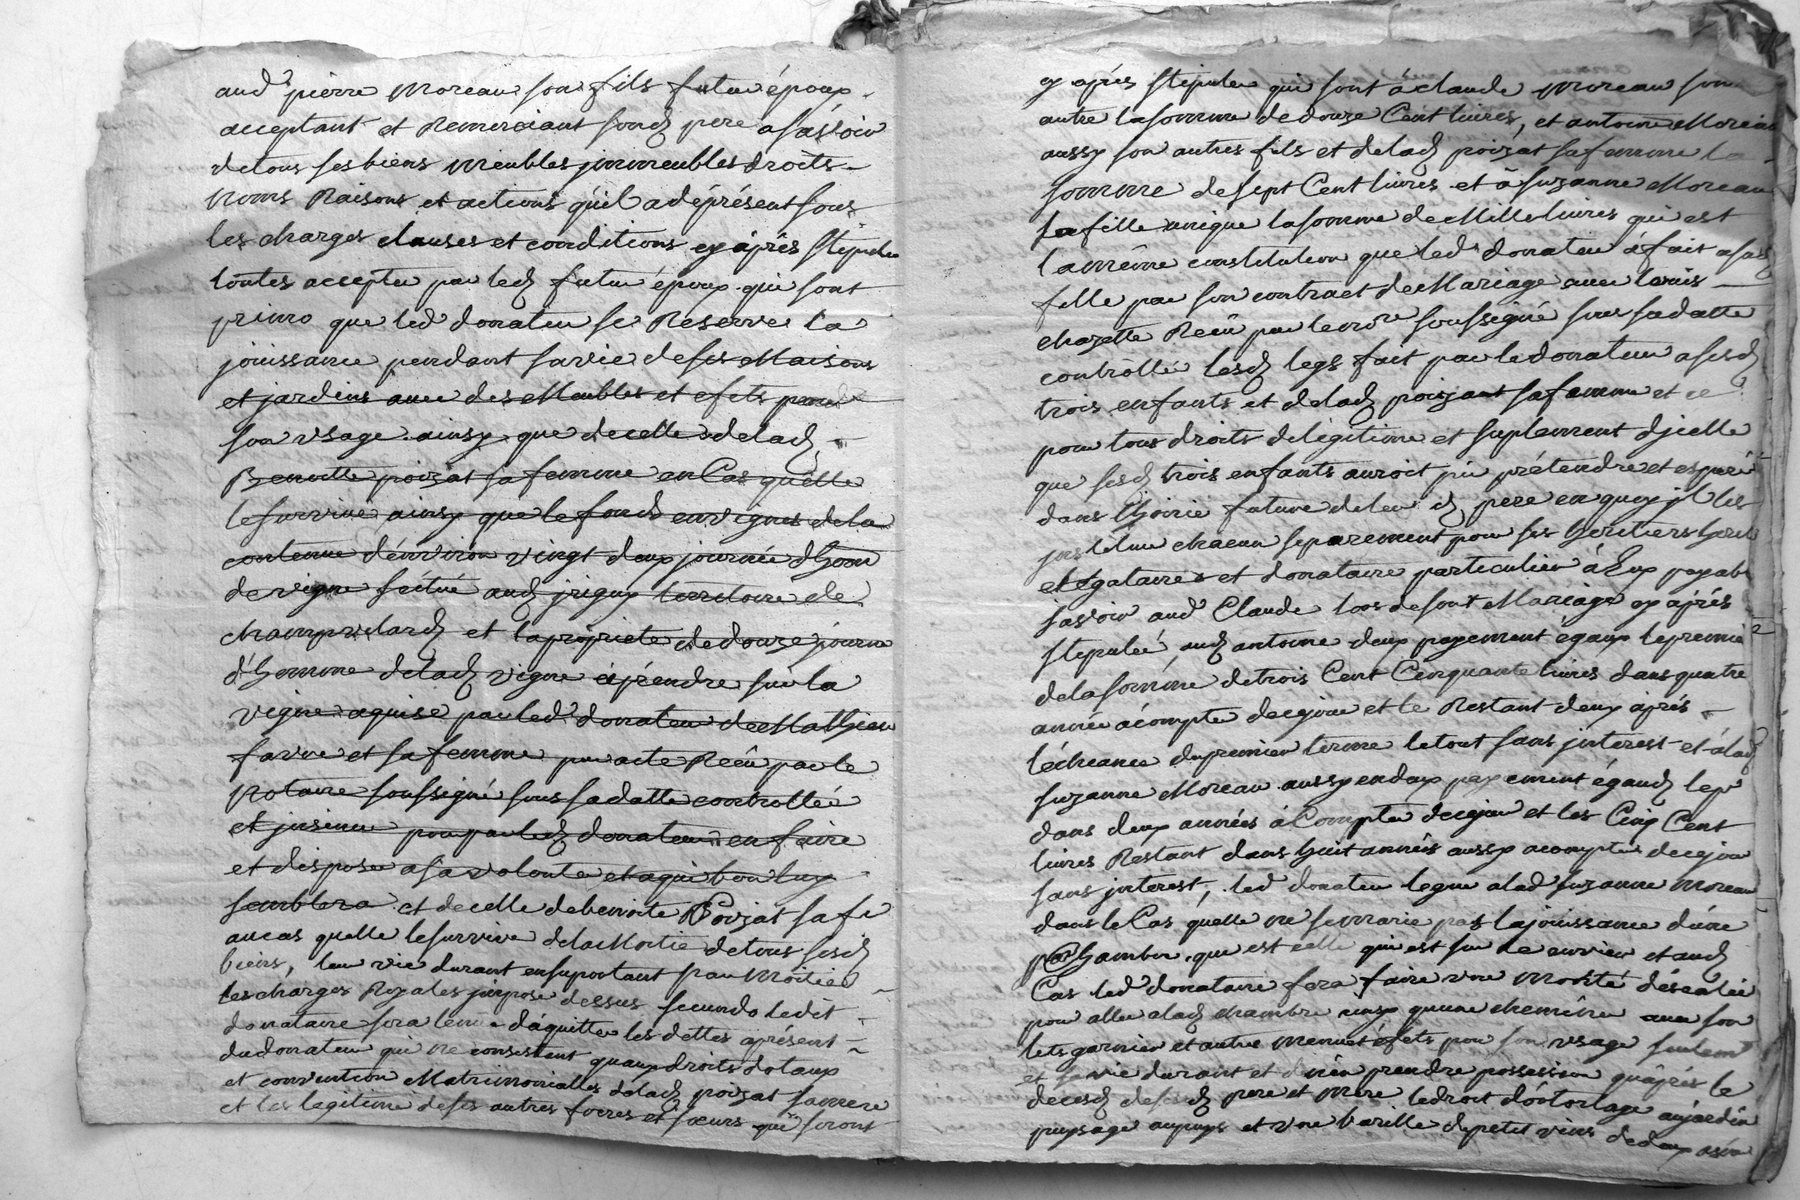 aud pierre Moreau son fils futur époux
acceptant et Remerciant sond pere asavoir
detous ses biens meubles jmmeubles droits
Noms Raisons et actions qu'il a déprésent sous
les charges clauses et conditions cy aprés stipulés
toutes accepté par led futur époux qui sont
primo que led donateur se Reserve la
jouissance pendant sa vie de ses Maisons
et jardins avec des Meubles et efets pour
son usage ainsy que de celle de lad
Benoitte poizat sa femme en Cas quelle
le survive ainsy que le fond en vignes de la
contenue d'énviron vingt deux journée d'hom
de vigne scitué aud jrigny territoire de
et la propriete de douze journé
d'homme de lad vigne à préndre sur la
vigne aquise par led donateur de Mathieu
favre et sa femme par acte Reçû par le
Notaire soussigné sous sa datte controllée
et jnsinué pour par led donateur en faire
et disposer a sa volonté et a qui bon luy
semblera et de celle de benoite Poizat sa fe
au cas quelle le survive de la Moitié de tous sesd
biens, leur vie durant en suportant par Moitié
les charges Royales jmposé dessus. secundo ledit
donataire sera tenu d'aquitter les dettes aprésent
du donateur qui ne consistent quaux droits dotaux
et convention Matrimonialles de lad poizat sa mere
et les legitime de ses autres freres et sœurs qui seront
cy aprés stipulés qui sont à claude Moreau son
autre la somme de douze Cent livres, et antoine Moreau
aussy son autres fils et de lad poizat sa femme la
somme de sept Cent livres et à suzanne Moreau
sa fille unique la somme de Mille livres qui est
la même constitution que led donateur à fait a sad
fille par son contract de Mariage avec louis
chazette Reçû par le no.re soussigné sous sa datte
contrôllé lesd legs fait par le donateur a sesd
trois enfants et de lad poizant sa femme et ce
pour tous droits de légitime et suplement djcelle
que sesd trois enfants auroit pû prétendre et esperé
dans l'hoirie future de leur d. pere en quoy jl les
jnstitue chacun séparement pour ses heritiers
et légataires et donataire particulier à Eux payab
sçavoir aud Claude lors de son Mariage cy aprés
stipulé, aud antoine deux payement égaux le premié
de la somme de trois Cent Cinquante livres dans quatre
année à compter de ce jour et le Restant deux aprés
l'échéance du premier terme le tout sans jnterest et à lad
suzanne Moreau aussy en deux payement égaux le pr
dans deux années à Compter de ce jour et les Cinq Cent
livres Restant dans huit années aussy a compter de ce jour
sans jnterest, led donateur legue a lad suzanne Moreau
dans le Cas quelle ne se marie pas la jouissance d'une
Chambre, que est celle qui est sur le cuvier et aud
Cas led donataire fera faire une Montée
pour aller a lad chambre ainsy qu'une cheminée avec son
lets garnier et autre menuët éfets pour son usage seulem
et sa vie durant et d'en prendre possession qu'aprés le
decesd desesd pere et mére le droit d'ortolage au jardin
puysage au puys et une barille de petit vins de deux